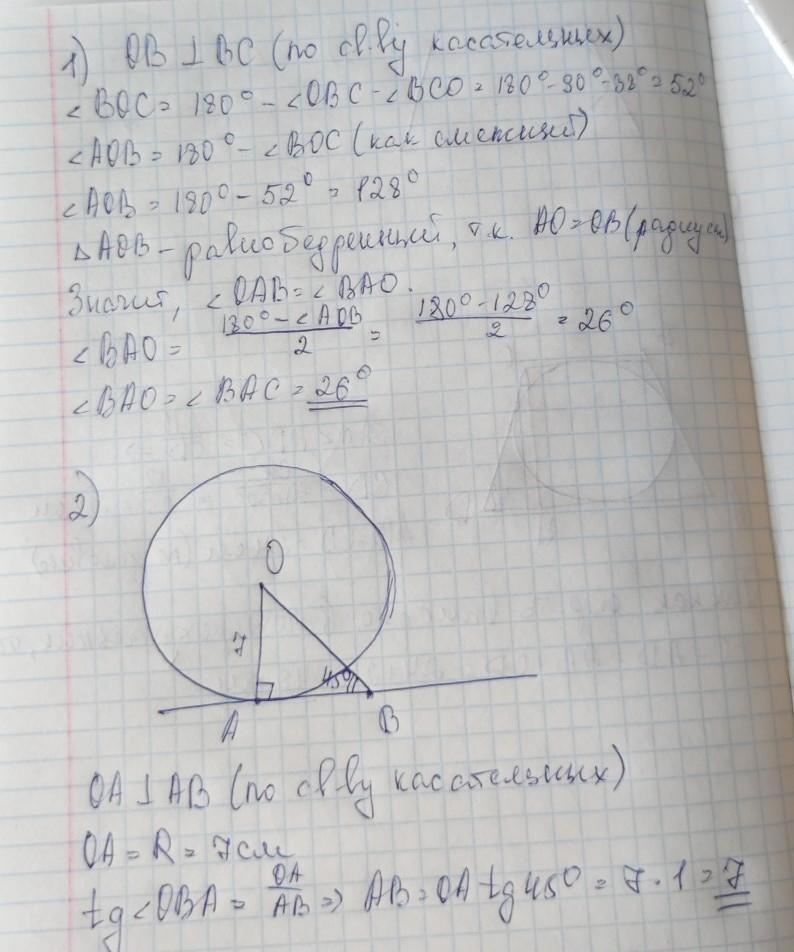 1) OB ⊥ BC (по св-ву касательных)
∠BOC = 180° - ∠OBC - ∠BCO = 180° - 90° - 38° = 52°
∠AOB = 180° - ∠BOC (как смежный)
∠AOB = 180° - 52° = 128°
△AOB - равнобедренный, т.к. AO = OB (радиусы)
Значит, ∠OAB = ∠BAO.
∠BAO = (180° - ∠AOB)/2 = (180° - 128°)/2 = 26°
∠BAO = ∠BAC = 26°
2)
O
7
45°
A
B
OA ⊥ AB (по св-ву касательных)
OA = R = 7 см
tg∠OBA = OA/AB ⇒ AB = OA tg 45° = 7 · 1 = 7